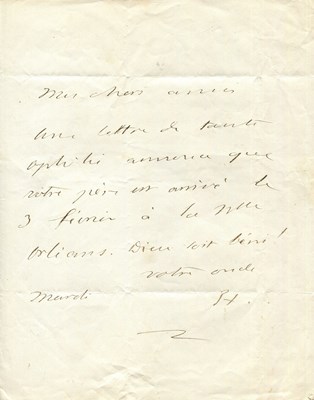 Mes chers amis
Une lettre de tante
annonce que
votre père est arrivé le
3 février à la Nlle
Orléans. Dieu soit béni!
votre oncle
Mardi